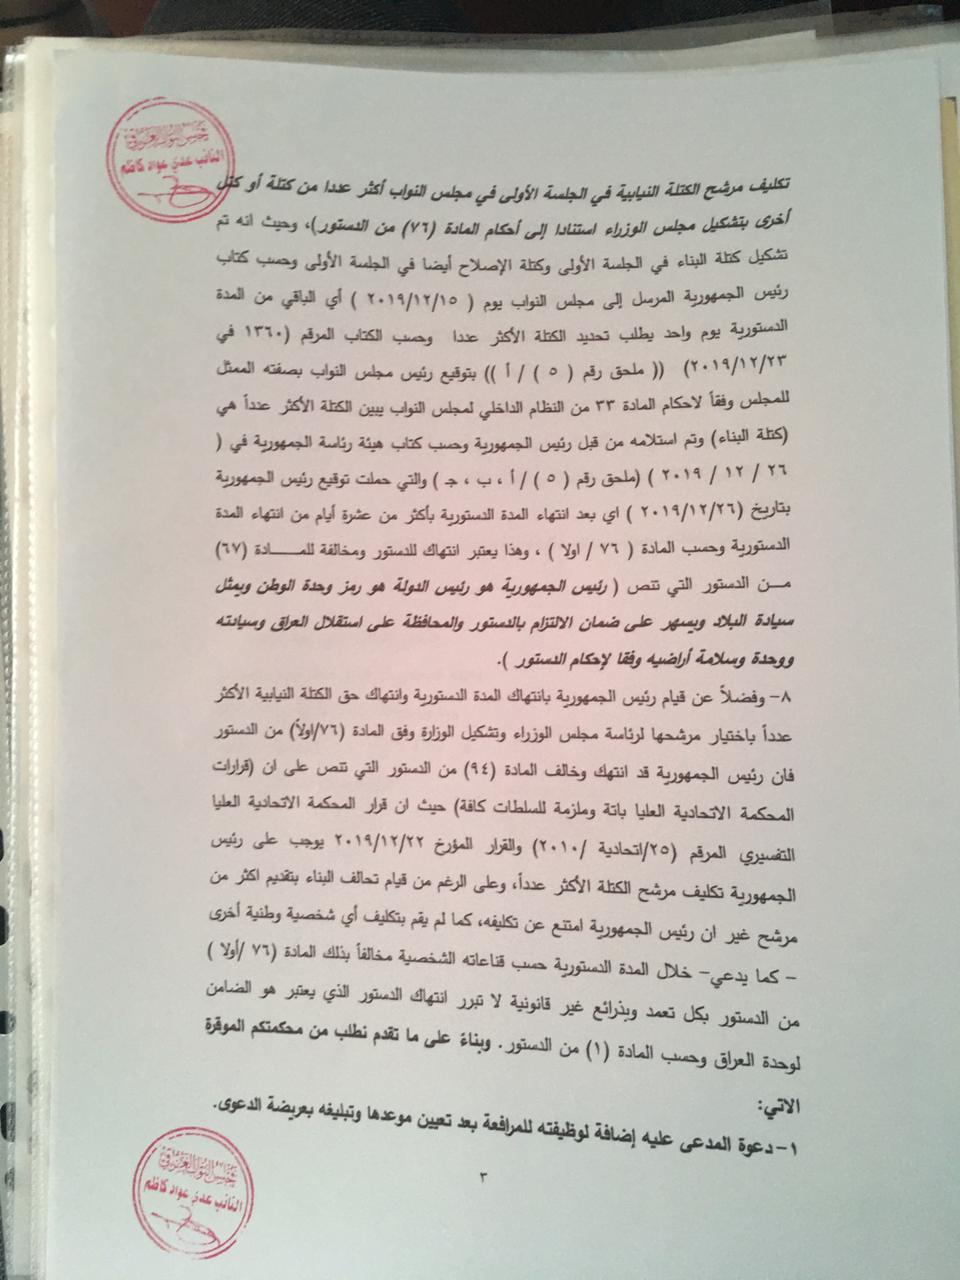 مجلس النواب العراقي
النائب عدي عواد كاظم
تكليف مرشح الكتلة النيابية في الجلسة الأولى في مجلس النواب أكثر عددا من كتلة أو كتل
أخرى بتشكيل مجلس الوزراء استنادا إلى أحكام المادة (٧٦) من الدستور)، وحيث انه تم
تشكيل كتلة البناء في الجلسة الأولى وكتلة الإصلاح أيضا في الجلسة الأولى وحسب كتاب
رئيس الجمهورية المرسل إلى مجلس النواب يوم ( ٢٠١٩/١٢/١٥ ) أي الباقي من المدة
الدستورية يوم واحد يطلب تحديد الكتلة الأكثر عددا وحسب الكتاب المرقم (١٣٦٠ في
٢٠١٩/١٢/٢٣) (( ملحق رقم ( ٥ ) / أ )) بتوقيع رئيس مجلس النواب بصفته الممثل
للمجلس وفقاً لاحكام المادة ٣٣ من النظام الداخلي لمجلس النواب يبين الكتلة الأكثر عدداً هي
(كتلة البناء) وتم استلامه من قبل رئيس الجمهورية وحسب كتاب هيئة رئاسة الجمهورية في (
٢٦ / ١٢ / ٢٠١٩ ) (ملحق رقم ( ٥ ) / أ ، ب ، جـ ) والتي حملت توقيع رئيس الجمهورية
بتاريخ (٢٠١٩/١٢/٢٦ ) اي بعد انتهاء المدة الدستورية بأكثر من عشرة أيام من انتهاء المدة
الدستورية وحسب المادة ( ٧٦ / اولا ) ، وهذا يعتبر انتهاك للدستور ومخالفة للمـــــادة (٦٧)
مـــن الدستور التي تنص ( رئيس الجمهورية هو رئيس الدولة هو رمز وحدة الوطن ويمثل
سيادة البلاد ويسهر على ضمان الالتزام بالدستور والمحافظة على استقلال العراق وسيادته
ووحدة وسلامة أراضيه وفقا لإحكام الدستور ).
٨- وفضلاً عن قيام رئيس الجمهورية بانتهاك المدة الدستورية وانتهاك حق الكتلة النيابية الأكثر
عدداً باختيار مرشحها لرئاسة مجلس الوزراء وتشكيل الوزارة وفق المادة (٧٦/اولاً) من الدستور
فان رئيس الجمهورية قد انتهك وخالف المادة (٩٤) من الدستور التي تنص على ان (قرارات
المحكمة الاتحادية العليا باتة وملزمة للسلطات كافة) حيث ان قرار المحكمة الاتحادية العليا
التفسيري المرقم (٢٥/اتحادية /٢٠١٠) والقرار المؤرخ ٢٠١٩/١٢/٢٢ يوجب على رئيس
الجمهورية تكليف مرشح الكتلة الأكثر عدداً، وعلى الرغم من قيام تحالف البناء بتقديم اكثر من
مرشح غير ان رئيس الجمهورية امتنع عن تكليفه، كما لم يقم بتكليف أي شخصية وطنية أخرى
- كما يدعي- خلال المدة الدستورية حسب قناعاته الشخصية مخالفاً بذلك المادة (٧٦ /أولا )
من الدستور بكل تعمد وبذرائع غير قانونية لا تبرر انتهاك الدستور الذي يعتبر هو الضامن
لوحدة العراق وحسب المادة (١) من الدستور. وبناءً على ما تقدم نطلب من محكمتكم الموقرة
الاتي:
١- دعوة المدعى عليه إضافة لوظيفته للمرافعة بعد تعيين موعدها وتبليغه بعريضة الدعوى.
٣
مجلس النواب العراقي
النائب عدي عواد كاظم